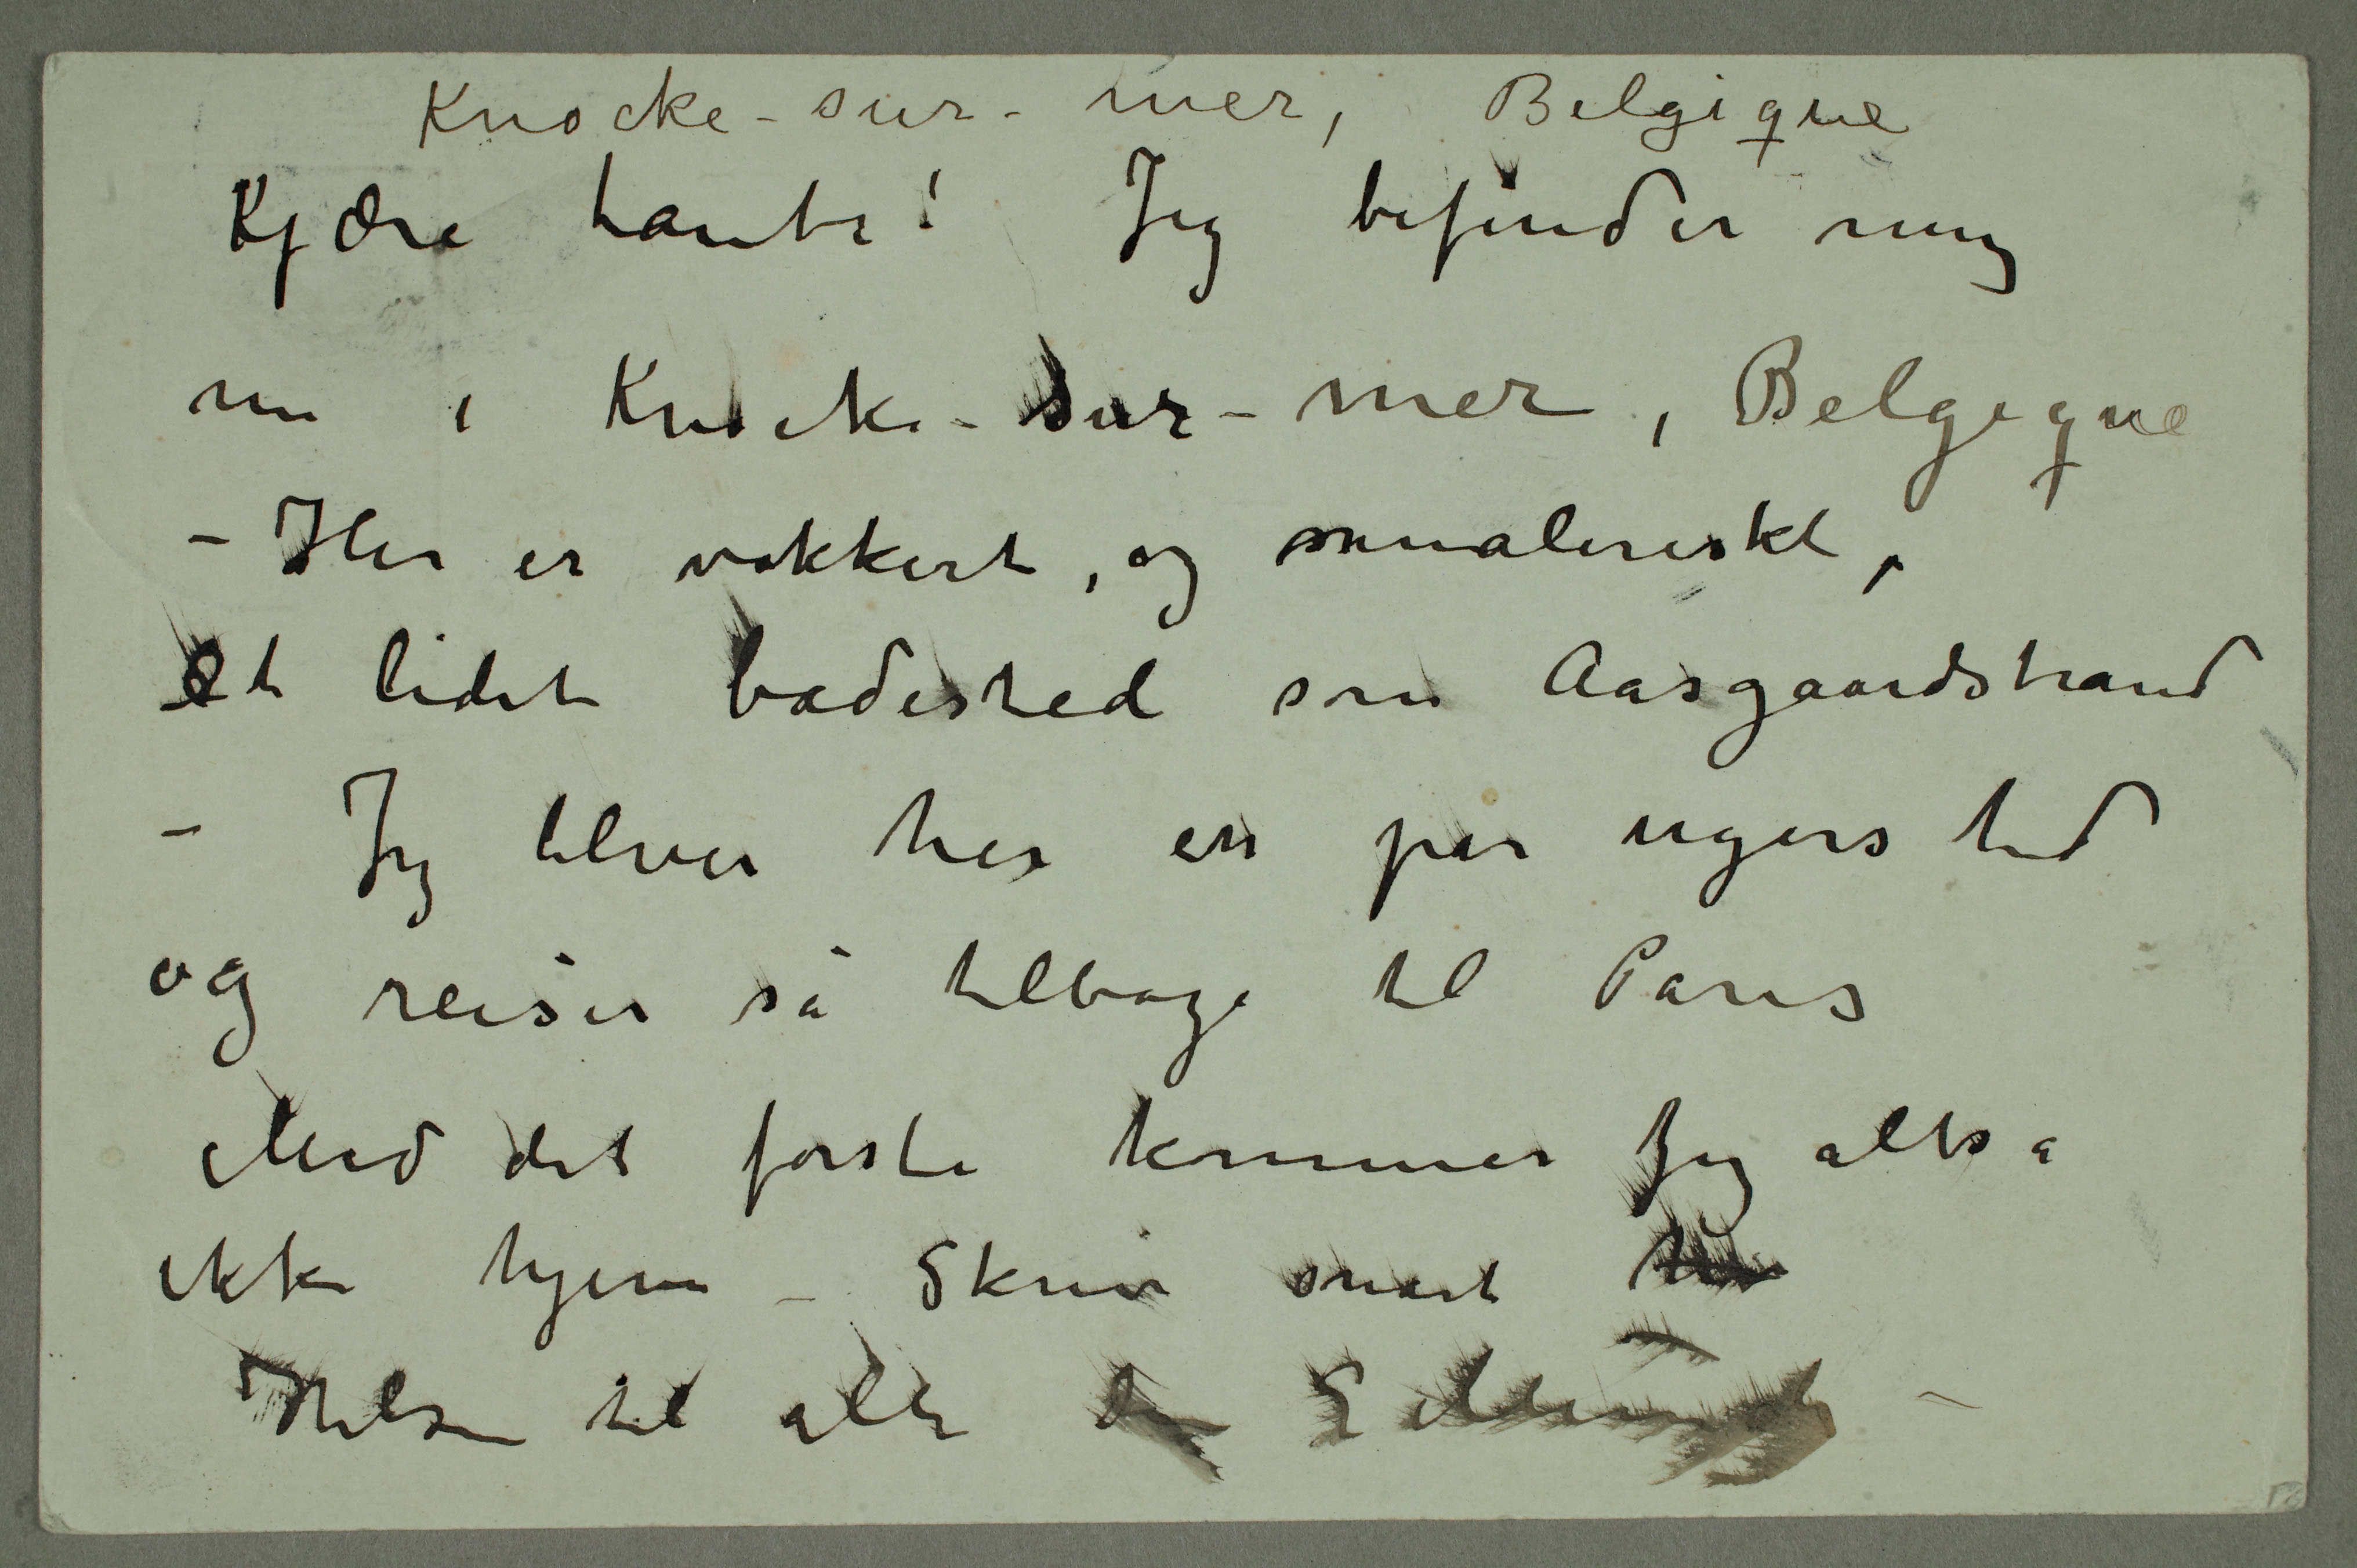 Knocke-sur-mer, Belgique
Kjære tante! Jeg befinder mig
nu i Knocke-sur-mer, Belgique
– Her er vakkert, og malerisk,
et lidet badested som Aasgaardstrand
– Jeg bliver her en par ugers tid
og reiser så tilbage til Paris
Med det første kommer jeg altså
ikke hjem – Skriv snart
Hilsen til alle Din E Munch –